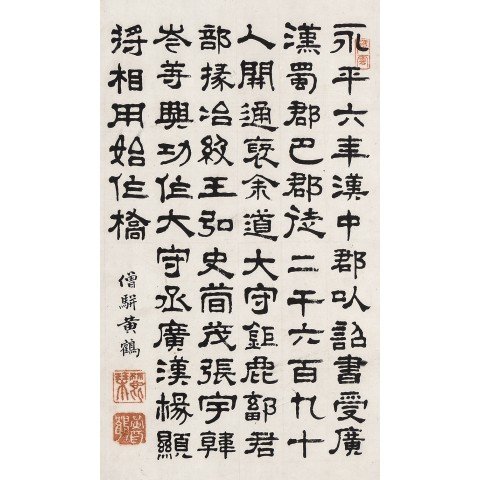 永平六年漢中郡以詔書受廣
漢蜀郡巴郡徒二千六百九十
人開通褒余道大守鉅鹿鄐君
部掾冶級王弘史荀茂張宇韓
岑等興功作大守丞廣漢楊顯
將相用始作橋
僧駢黃鶴